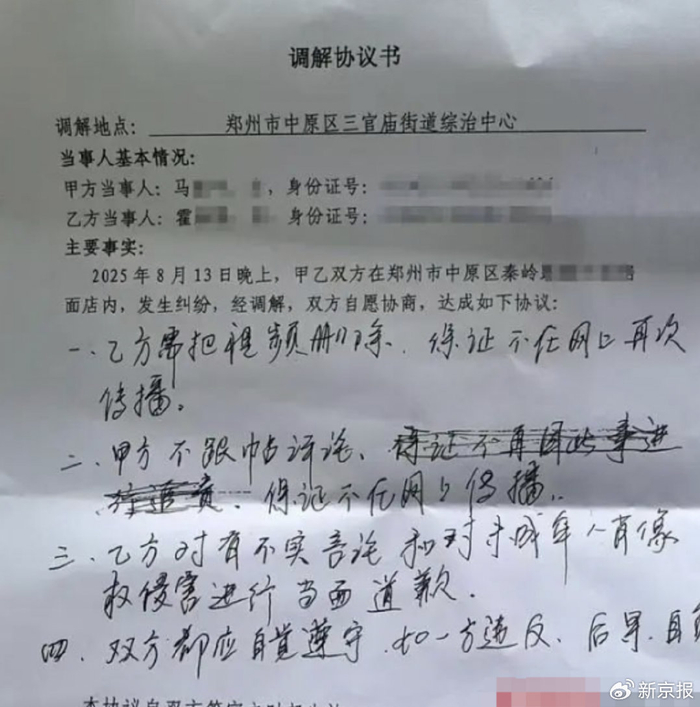 调解协议书
调解地点： 郑州市中原区三官庙街道综治中心
当事人基本情况：
甲方当事人：马 ，身份证号：
乙方当事人：霍 ，身份证号：
主要事实：
2025年8月13日晚上，甲乙双方在郑州市中原区秦岭
面店内，发生纠纷，经调解，双方自愿协商，达成如下协议：
一、乙方需把视频删除、保证不在网上再次
传播。
二、甲方不跟帖评论、保证不再因此事进
行追责、保证不在网上传播。
三、乙方对有不实言论和对未成年人肖像
权侵害进行当面道歉.
四、双方都应自觉遵守、如一方违反、后果自
本协议自双方签字
新京报